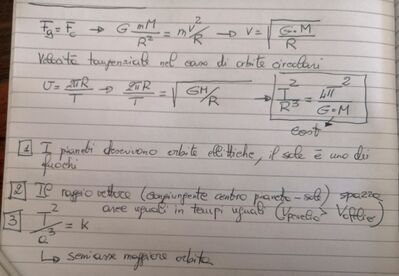 Fg = Fc → G mM/R² = m v²/R → V = √(G·M/R)
Velocità tangenziale nel caso di orbite circolari
U = 2πR/T → 2πR/T = √(GM/R) → T²/R³ = 4π²/(G·M)
cost
1 I pianeti descrivono orbite ellittiche, il sole è uno dei
fuochi
2 Il raggio vettore (congiungente centro pianeta-sole) spazza
aree uguali in tempi uguali (Vperielio > Vafelio)
3 T²/a³ = k
↳ semiasse maggiore orbita